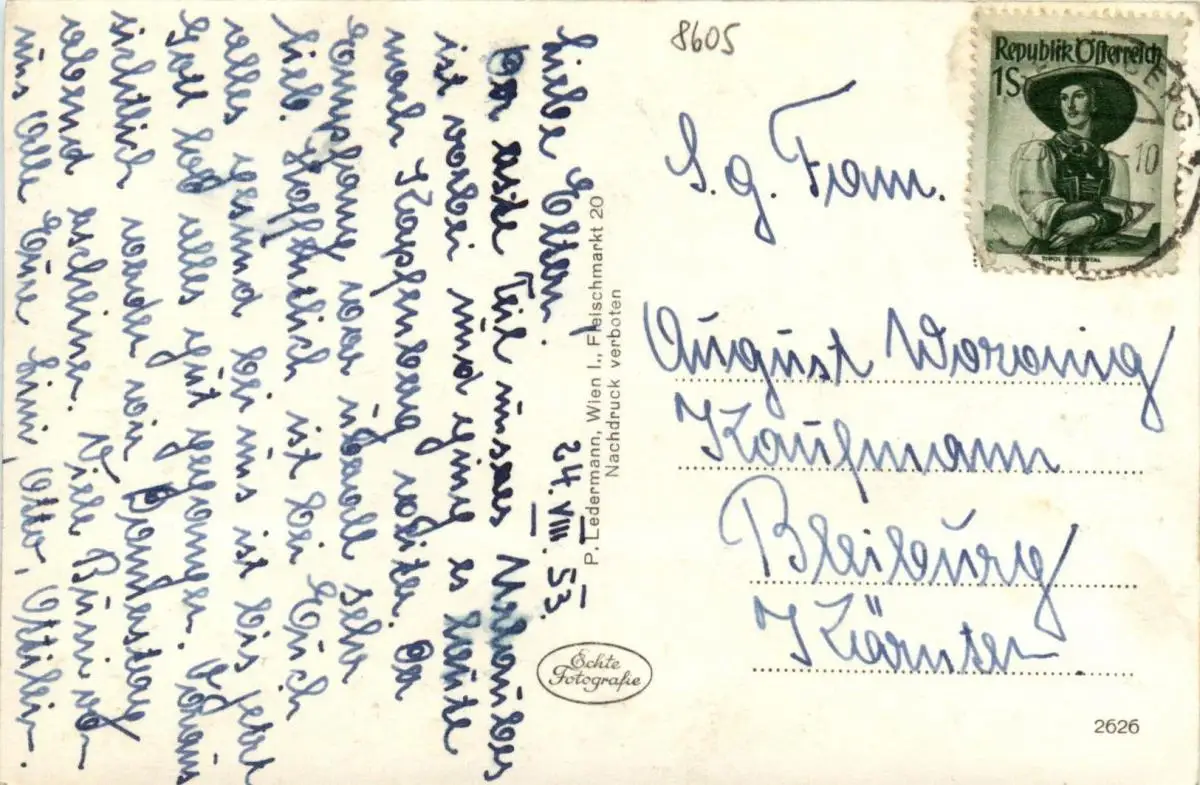 24. VIII. 53.
Liebe Eltern!
Der erste Teil unseres Urlaubes
ist vorbei und ging es heute
nach Kapfenberg weiter. Der
Empfang war überall sehr
lieb. Hoffentlich ist bei Euch
alles gesund bei uns ist bis jetzt
Gott lob alles gut gegangen. Voraus
sichtlich werden wir Donnerstag
abend erscheinen. Viele Bussi von
uns Alle Eure Lini, Otto, Ottilie.
P. Ledermann, Wien I., Fleischmarkt 20
Nachdruck verboten
Echte
Fotografie
8605
Republik Österreich
1S
10
S. g. Fam.
August Woronig
Kaufmann
Bleiburg
Kärnten
2626